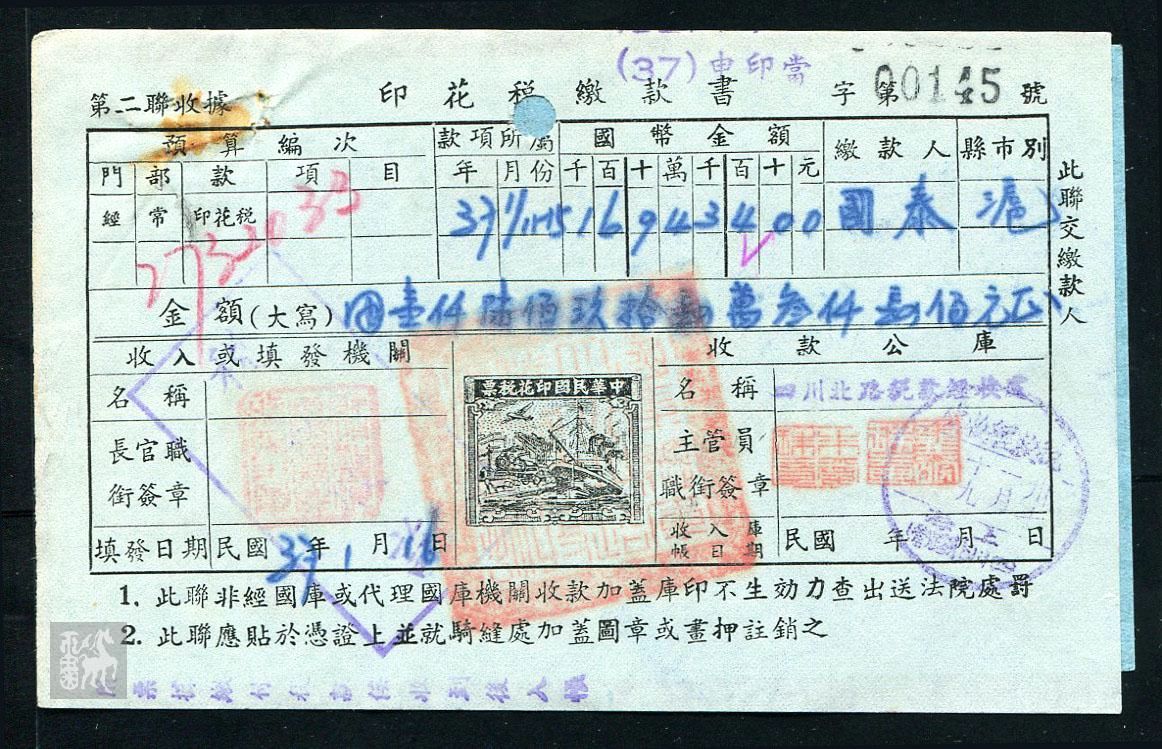 (37) 申印當
第二聯收據 印花税繳款書 字第00145號
預算編次 款項所屬 國幣金額 繳款人 縣市別
門 部 款 項 目 年 月份 千 百 十 萬 千 百 十 元
經 常 印花税 37 1/1-15 1 6 9 4 3 4 0 0 國泰 滬
7732033
金額(大寫) 壹仟陸佰玖拾肆萬叁仟肆佰元正
此聯交繳款人
收入或填發機關 收款公庫
名稱 中華民國印花税票 名稱 四川北路
長官職銜簽章 主管員職銜簽章
填發日期 民國37年1月16日 收入庫帳日期 民國 年 月 日
1. 此聯非經國庫或代理國庫機關收款加蓋庫印不生効力查出送法院處罰
2. 此聯應貼於憑證上並就騎縫處加蓋圖章或畫押註銷之